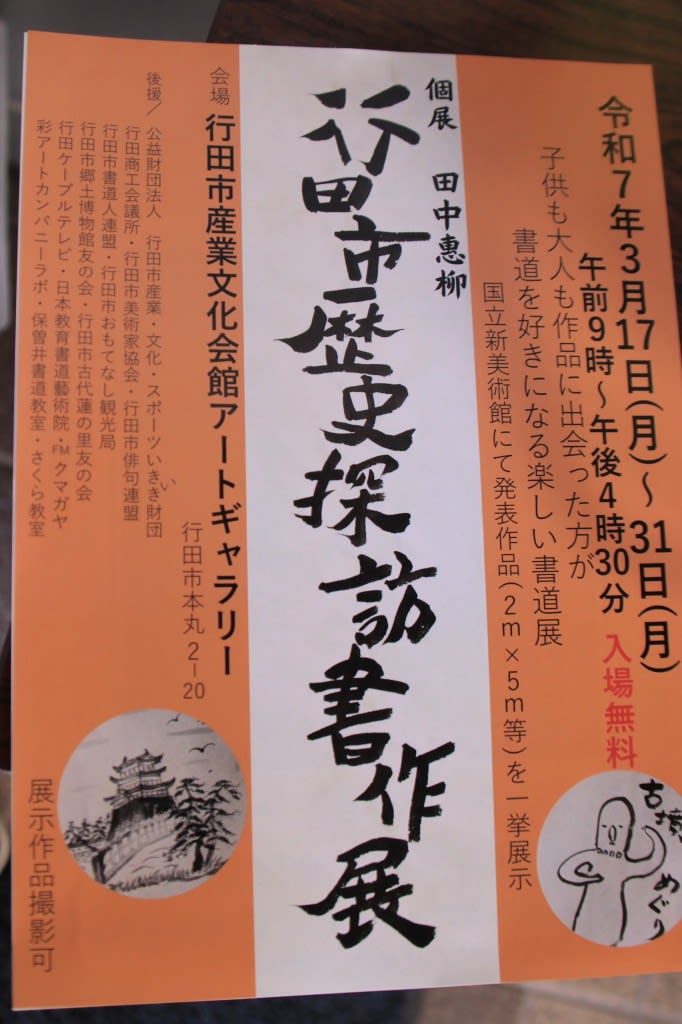 令和7年3月17日(月)～31日(月)
午前9時～午後4時30分 入場無料
子供も大人も作品に出会った方が
書道を好きになる楽しい書道展
国立新美術館にて発表作品(2m×5m等)を一挙展示
古墳めぐり
個展 田中惠柳
行田市歴史探訪書作展
会場 行田市産業文化会館アートギャラリー
行田市本丸2-20
後援/公益財団法人 行田市産業・文化・スポーツいきいき財団
行田商工会議所・行田市美術家協会・行田市俳句連盟
行田市書道人連盟・行田市おもてなし観光局
行田市郷土博物館友の会・行田市古代蓮の里友の会
行田ケーブルテレビ・日本教育書道藝術院・FMクマガヤ
彩アートカンパニーラボ・保曽井書道教室・さくら教室
展示作品撮影可